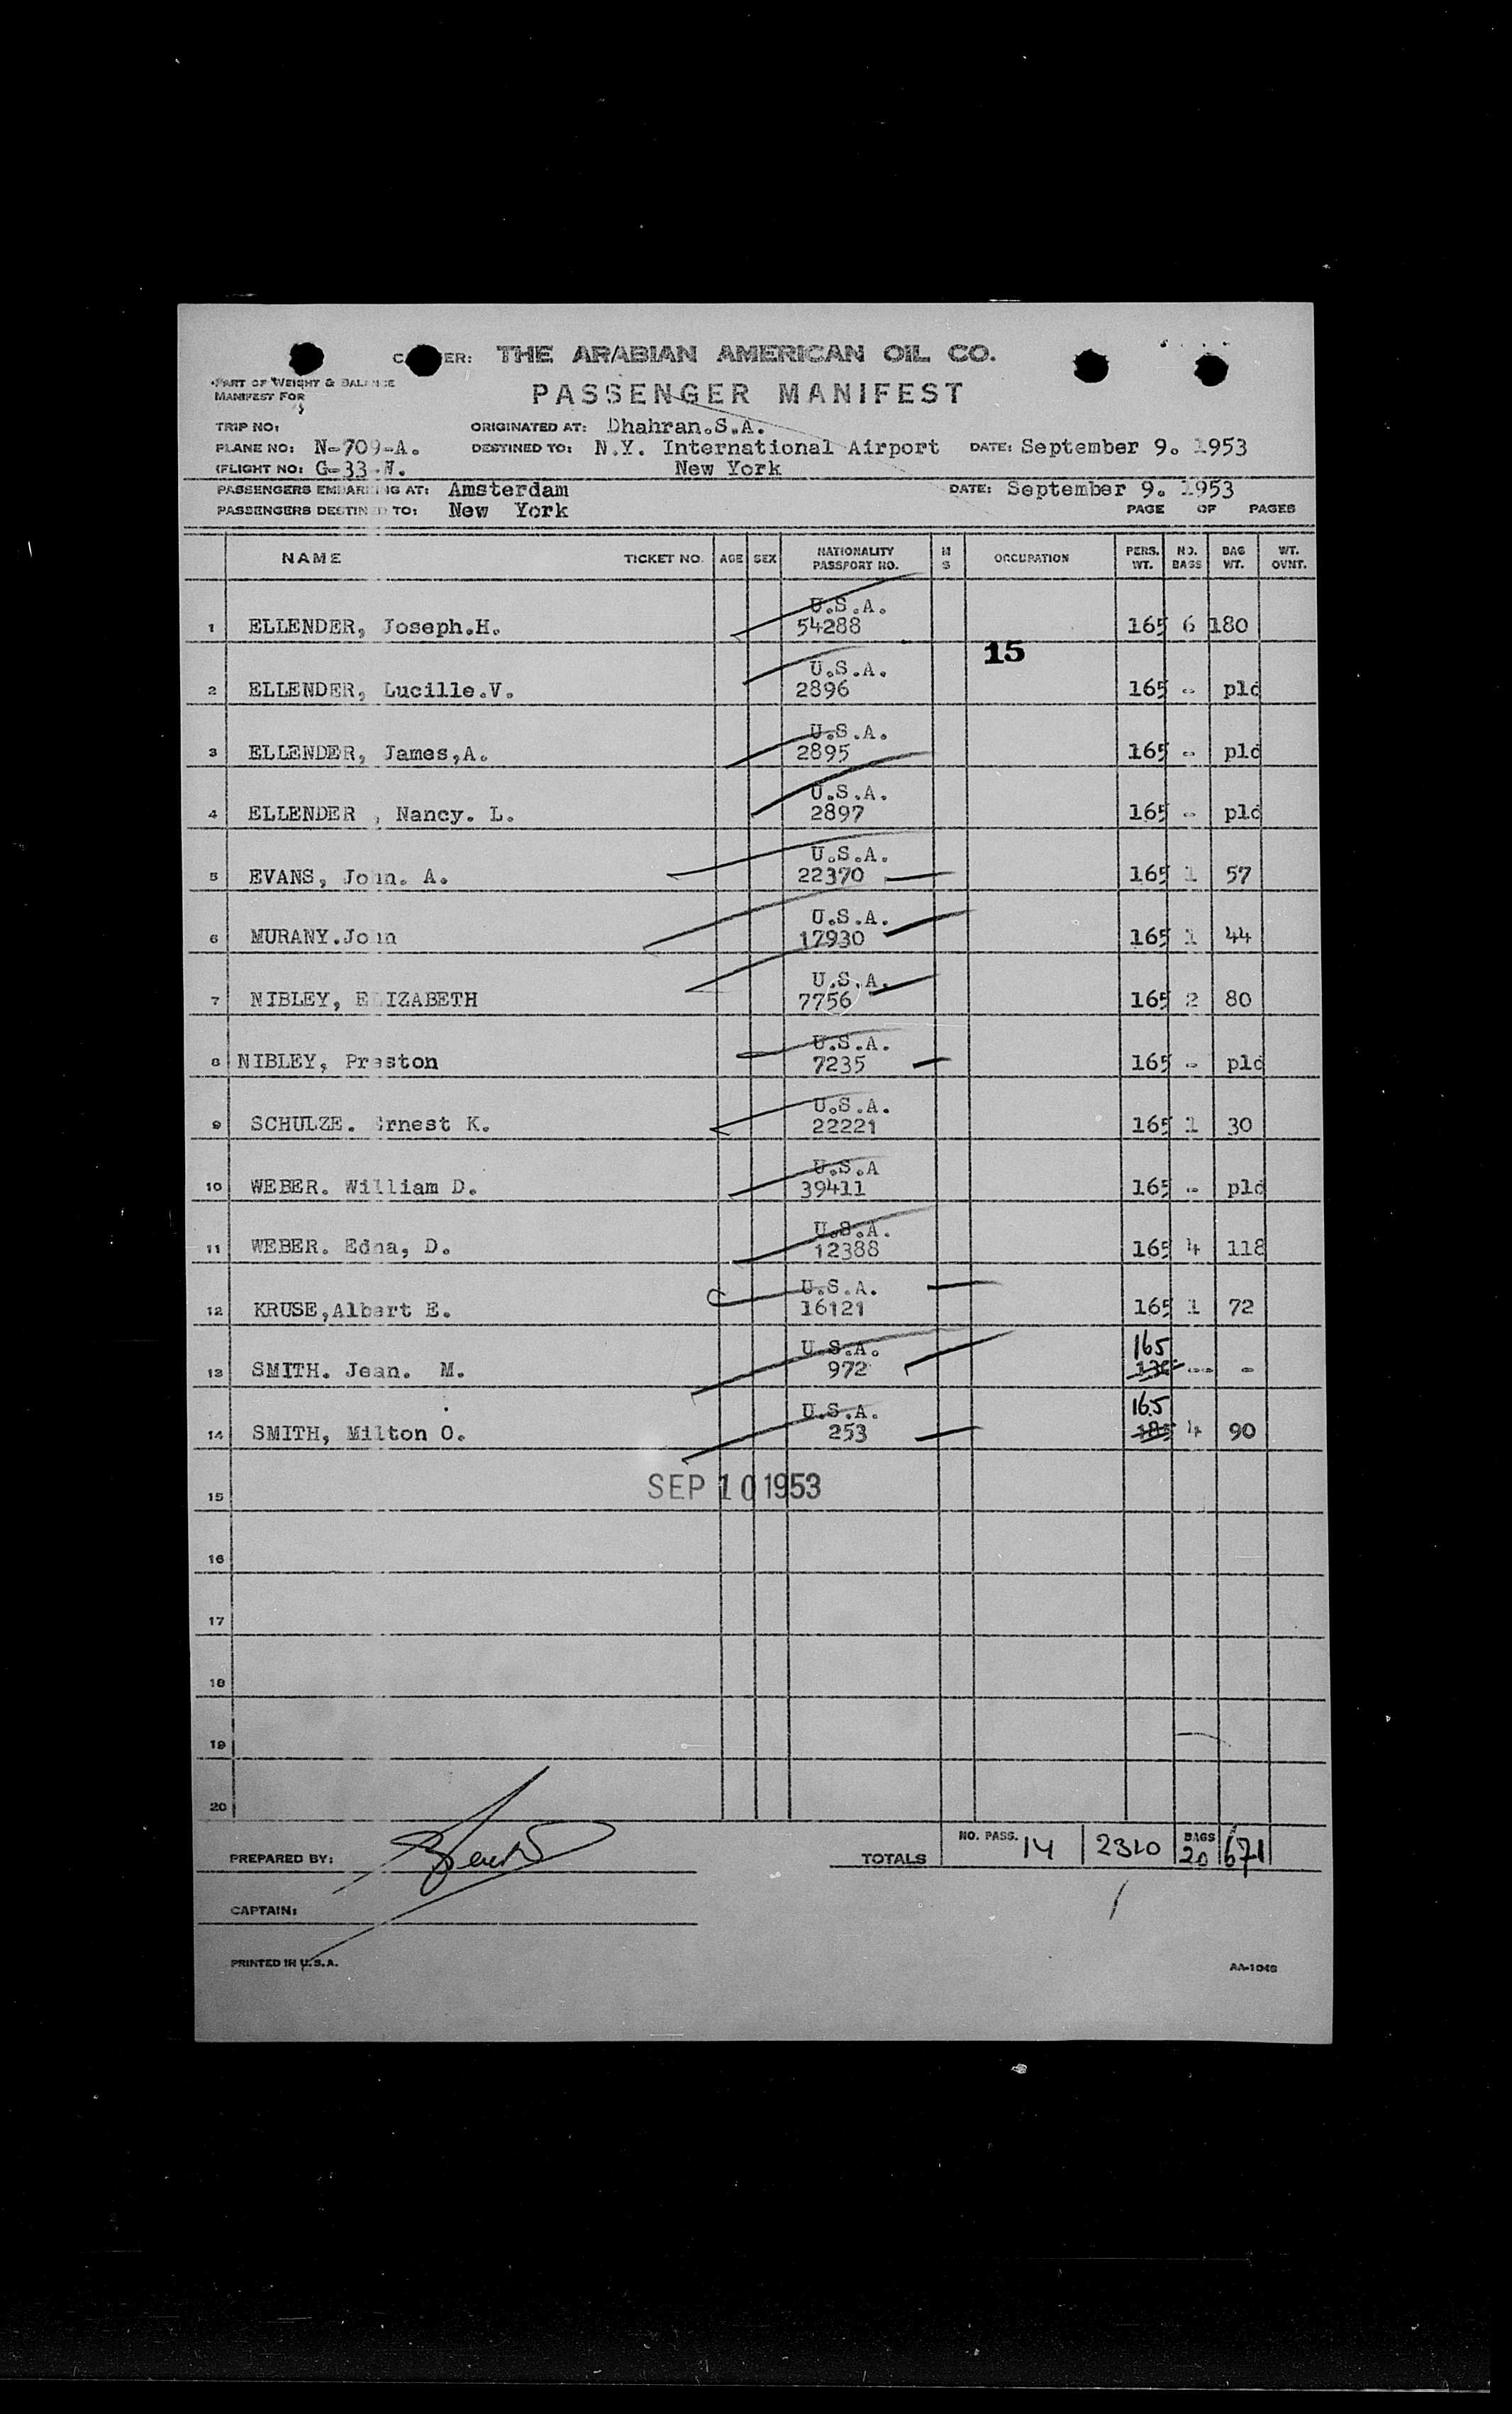 THE ARABIAN AMERICAN OIL CO.
PART OF WEIGHT & BALANCE
MANIFEST FOR
PASSENGER MANIFEST
TRIP NO:
ORIGINATED AT: Dhahran.S.A.
PLANE NO: N-709-A.
DESTINED TO: N.Y. International Airport
DATE: September 9. 1953
FLIGHT NO: G-33-W.
New York
PASSENGERS EMBARKING AT: Amsterdam
DATE: September 9. 1953
PASSENGERS DESTINED TO: New York
PAGE OF PAGES
NAME TICKET NO. AGE SEX NATIONALITY PASSPORT NO. M S OCCUPATION PERS. WT. NO. BAGS BAG WT. WT. OVNT.
U.S.A.
1 ELLENDER, Joseph.H. 54288 165 6 180
15
U.S.A.
2 ELLENDER, Lucille.V. 2896 165 - pld
U.S.A.
3 ELLENDER, James,A. 2895 165 - pld
U.S.A.
4 ELLENDER , Nancy. L. 2897 165 - pld
U.S.A.
5 EVANS, John. A. 22370 165 1 57
U.S.A.
6 MURANY.John 17930 165 1 44
U.S.A.
7 NIBLEY, ELIZABETH 7756 165 2 80
U.S.A.
8 NIBLEY, Preston 7235 165 - pld
U.S.A.
9 SCHULZE. Ernest K. 22221 165 1 30
U.S.A
10 WEBER. William D. 39411 165 - pld
U.S.A.
11 WEBER. Edna, D. 12388 165 4 118
U.S.A.
12 KRUSE,Albert E. 16121 165 1 72
U.S.A. 165
13 SMITH. Jean. M. 972 -- -
U.S.A. 165
14 SMITH, Milton O. 253 185 4 90
SEP 10 1953
15
16
17
18
19
20
PREPARED BY:
TOTALS NO. PASS. 14 2310 BAGS 20 671
CAPTAIN:
PRINTED IN U.S.A.
AA-1048